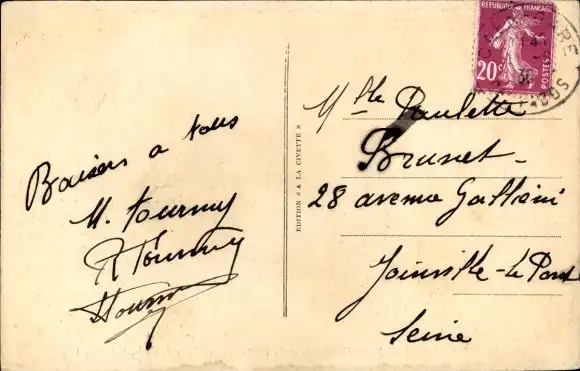 Baisers a tous
M. Tournuy
R Tournuy
EDITION « A LA CIVETTE »
REPUBLIQUE FRANÇAISE
20c
POSTES
Mlle Paulette
Brunet -
28 avenue Gallieni
Joinville-le Pont
Seine